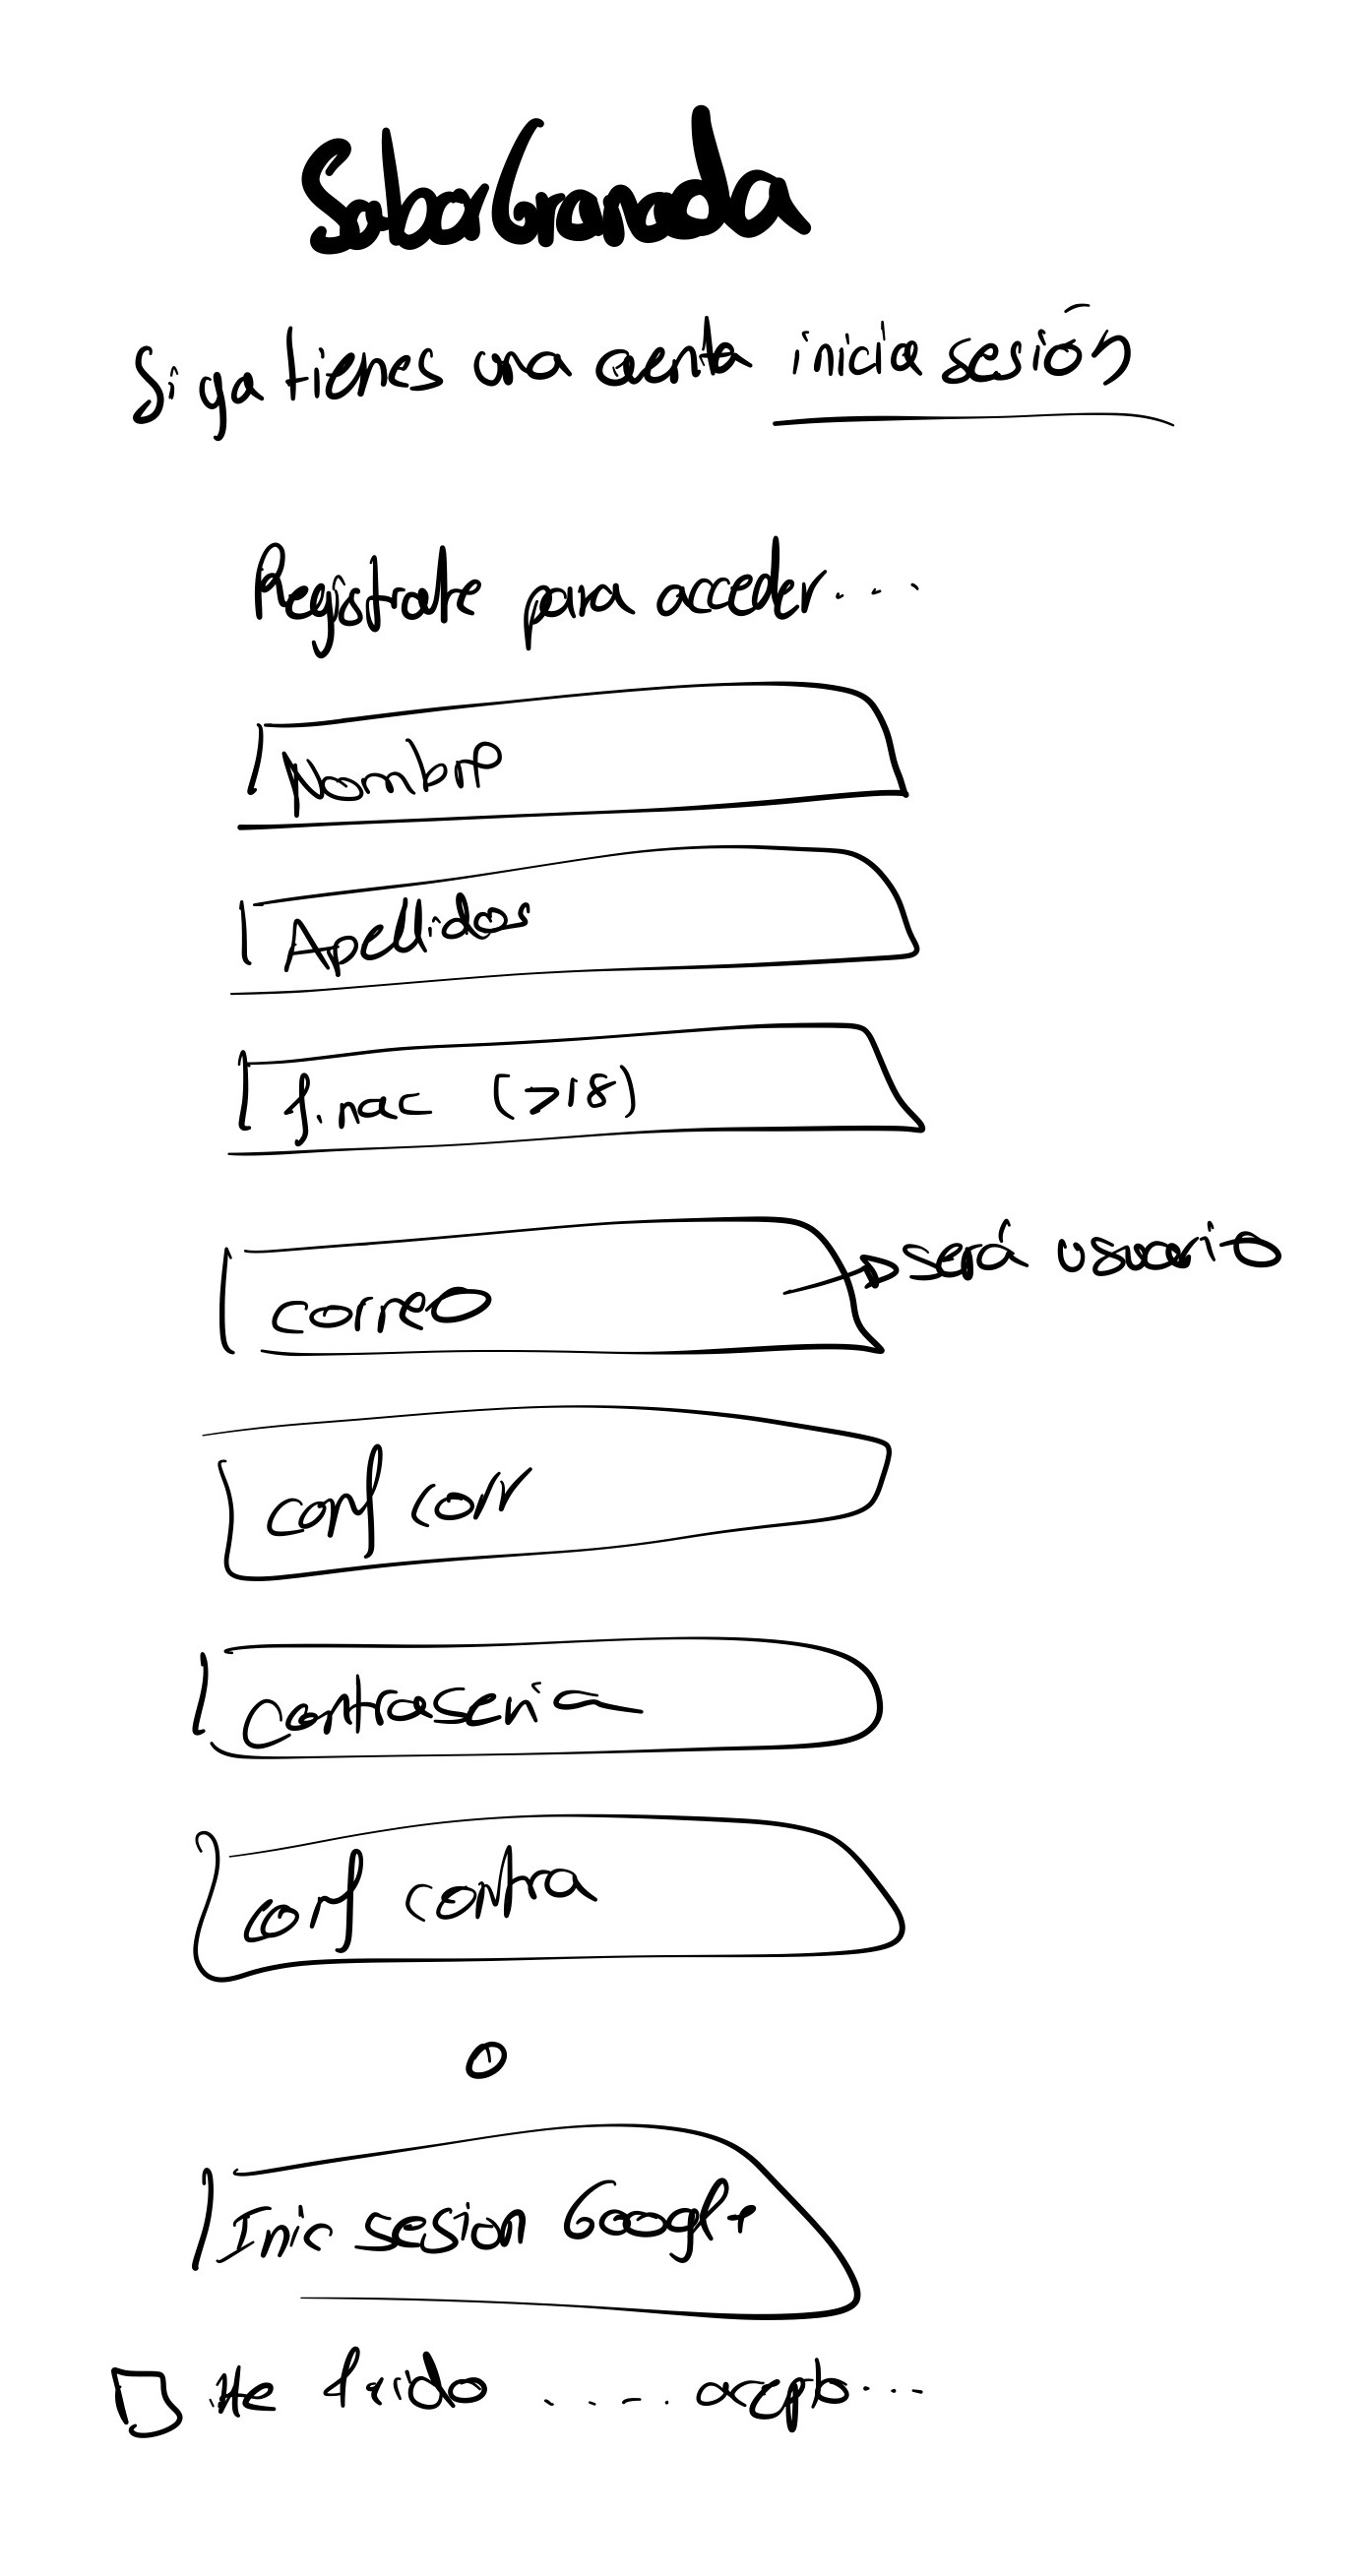 SaborGranada
Si ya tienes una cuenta inicia sesión
Registrate para acceder....
Nombre
Apellidos
f.nac (>18)
correo
será usuario
conf corr
contraseña
conf contra
o
Inic sesion Google
He leido ..... acepto....